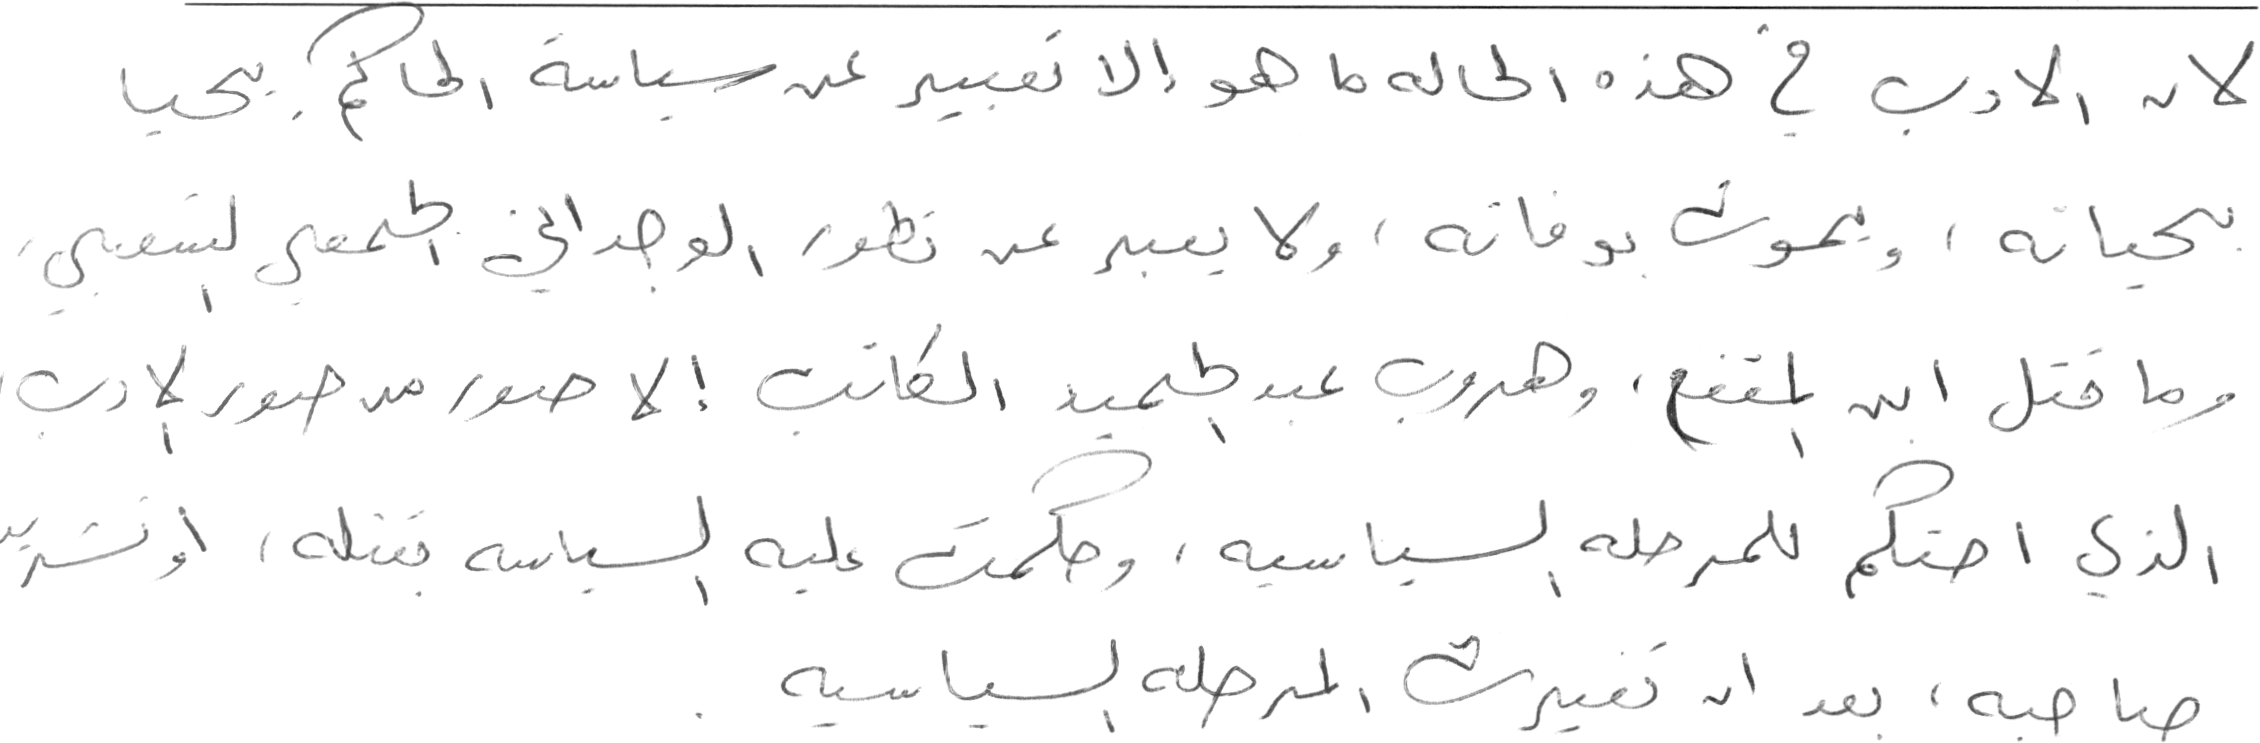 لان الادب في هذه الحاله ما هو إلا تعبير عن سياسة الحاكم، يحيا
بحياته، ويموت بوفاته، ولا يعبر عن تطور الوجداني الجمعي الشعبي،
وما قتل ابن المقفع، وهروب عبد الحميد الكاتب إلا صور من صور الادب،
الذي احتكم للمرحله السياسيه، وحكمت عليه السياسه بقتله، او تشريد
صاحبه، بعد ان تغيرت المرحله السياسيه .